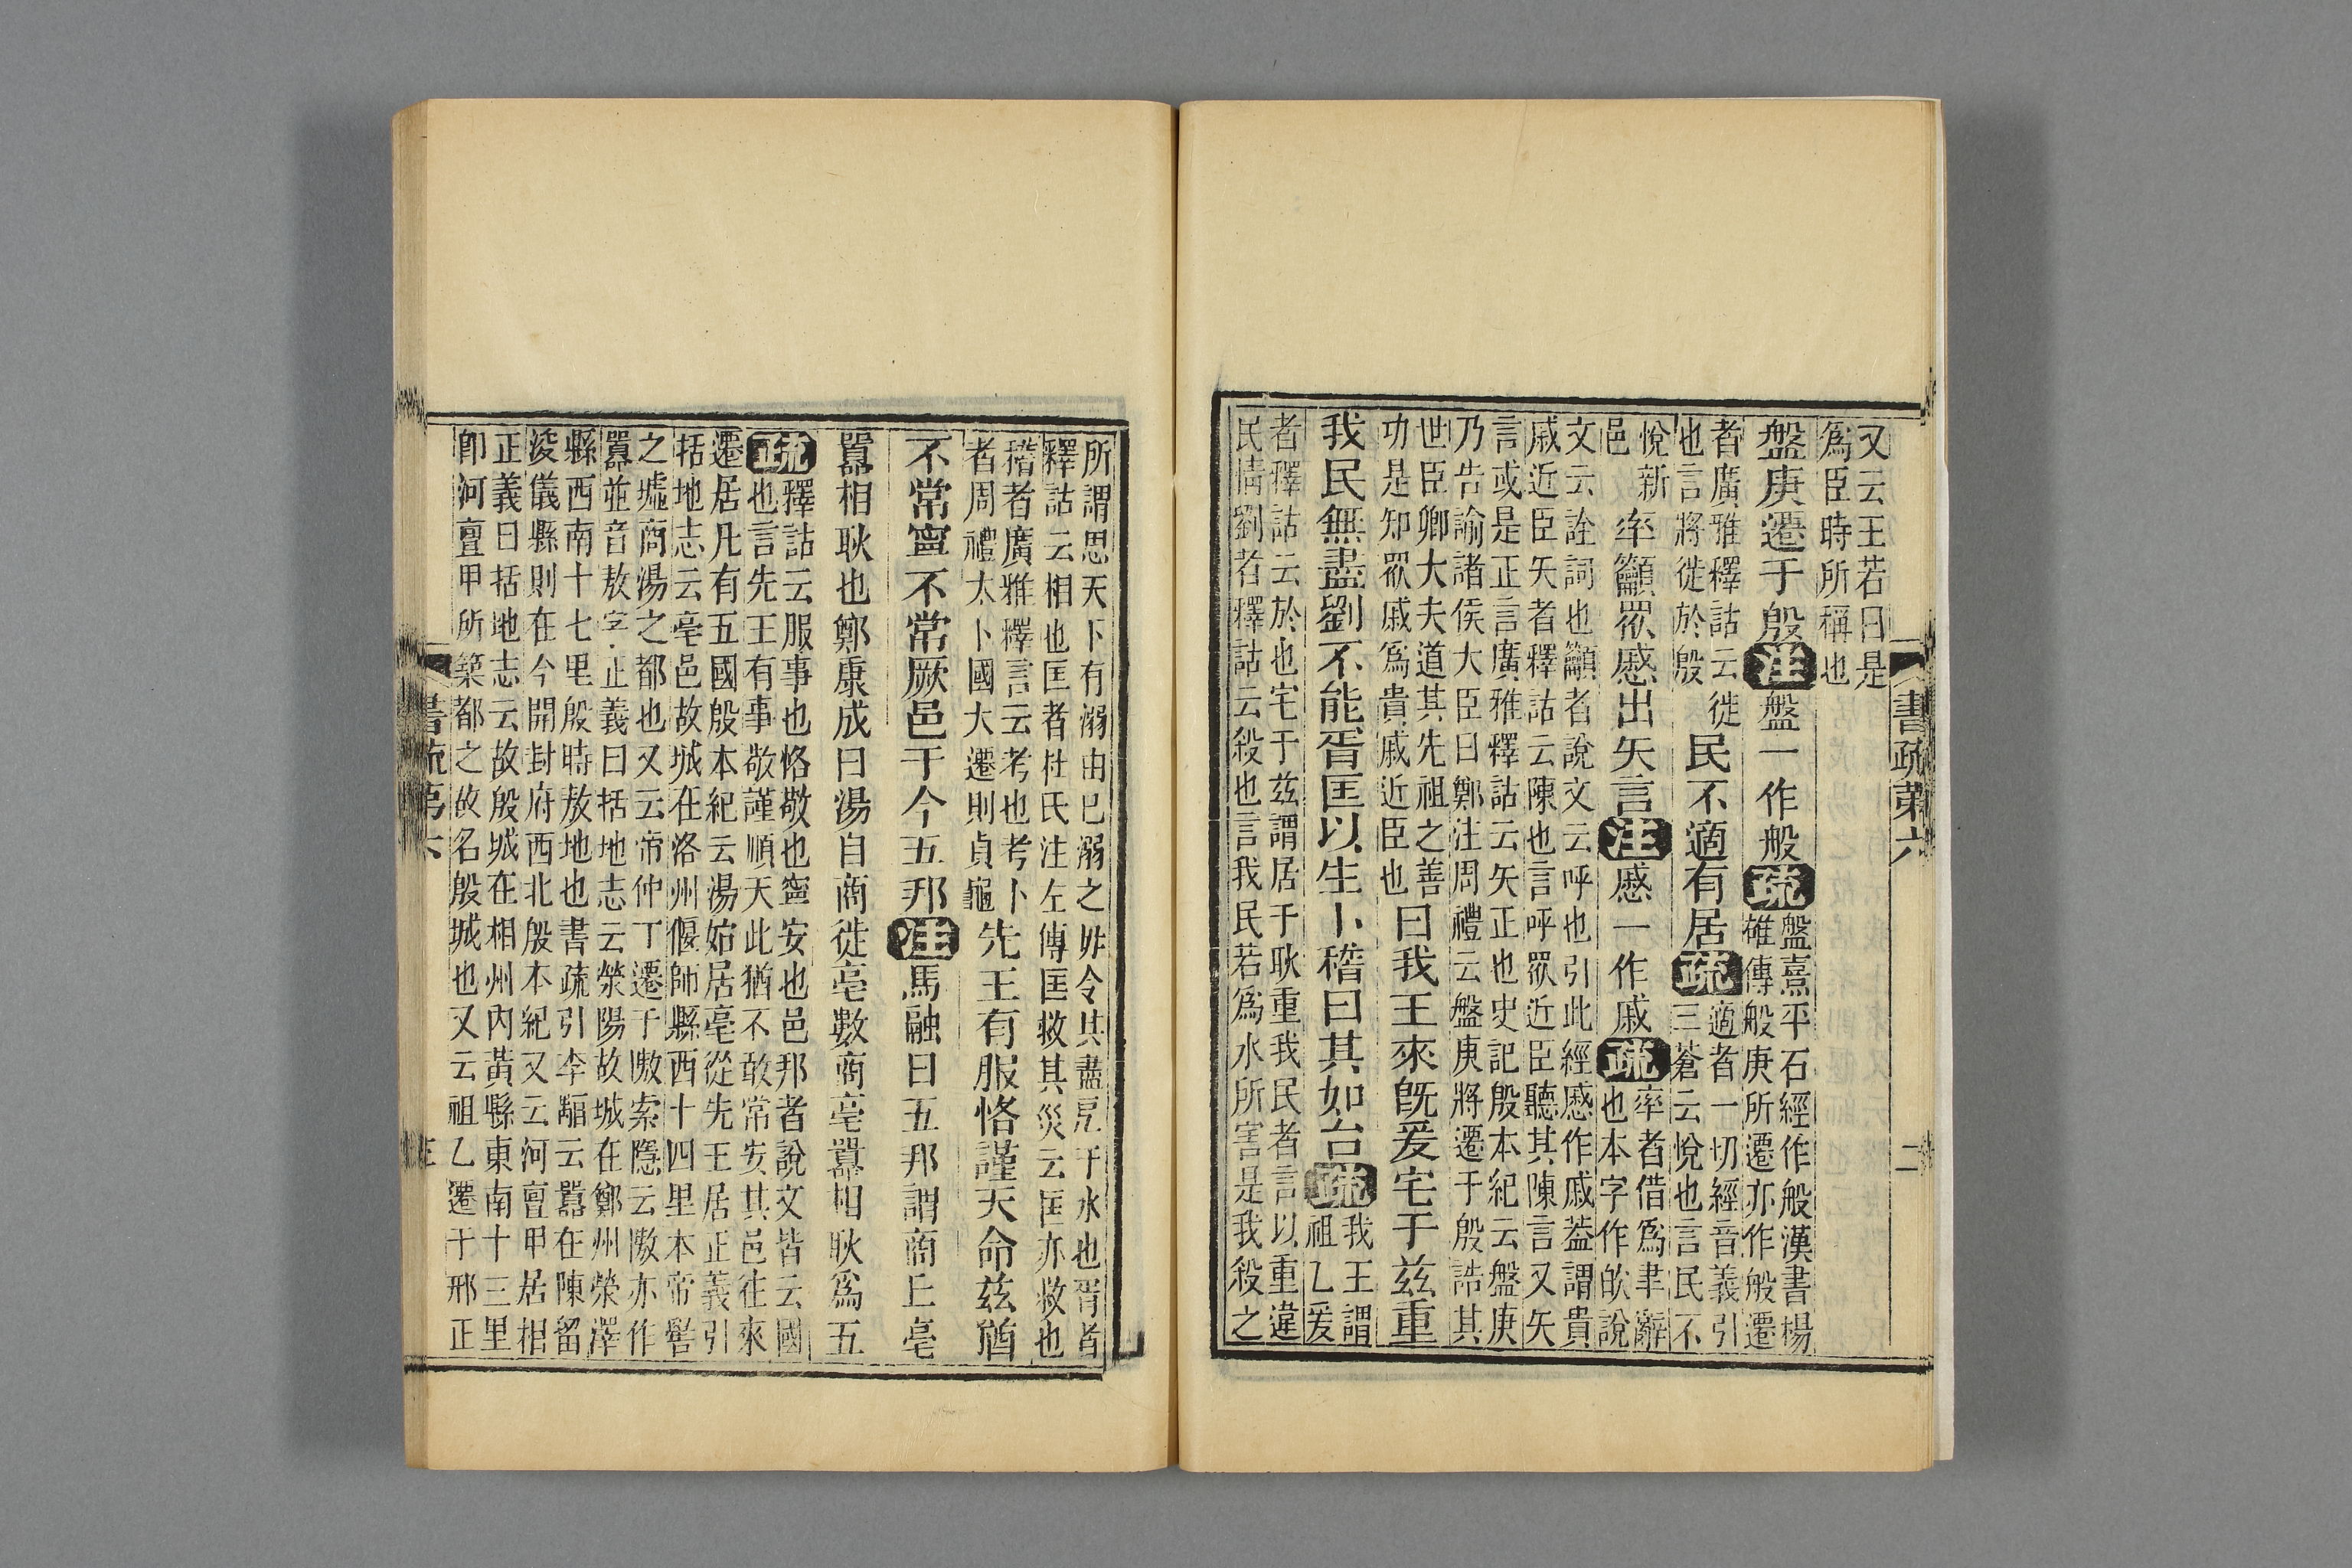 書疏弟六
二
又云王若曰是
爲臣時所稱也
盤庚遷于殷注盤一作般疏
盤熹平石經作般漢書楊
雄傳般庚所遷亦作般遷
者廣雅釋詁云徙
也言將徙於殷
民不適有居疏
適者一切經音義引
三蒼云悅也言民不
悅新
邑
率籲眾慼出矢言注慼一作戚疏
率者借爲聿辭
也本字作欥說
文云詮詞也籲者說文云呼也引此經慼作戚葢謂貴
戚近臣矢者釋詁云陳也言呼眾近臣聽其陳言又矢
言或是正言廣雅釋詁云矢正也史記殷本紀云盤庚
乃告諭諸侯大臣曰鄭注周禮云盤庚將遷于殷誥其
世臣卿大夫道其先祖之善
功是知眾戚爲貴戚近臣也
曰我王來旣爰宅于兹重
我民無盡劉不能胥匡以生卜稽曰其如台疏
我王謂
祖乙爰
者釋詁云於也宅于兹謂居于耿重我民者言以重違
民情劉者釋詁云殺也言我民若爲水所害是我殺之
所謂思天下有溺由已溺之毋令其盡死于水也胥者
釋詁云相也匡者杜氏注左傳匡救其災云匡亦救也
稽者廣雅釋言云考也考卜
者周禮太卜國大遷則貞龜
先王有服恪謹天命兹猶
不常寧不常厥邑于今五邦注馬融曰五邦謂商丘亳
囂相耿也鄭康成曰湯自商徙亳數商亳囂相耿爲五
疏
釋詁云服事也恪敬也寧安也邑邦者說文皆云國
也言先王有事敬謹順天此猶不敢常安其邑往來
遷居凡有五國殷本紀云湯始居亳從先王居正義引
括地志云亳邑故城在洛州偃師縣西十四里本帝嚳
之墟商湯之都也又云帝仲丁遷于隞索隱云隞亦作
囂並音敖字正義曰括地志云滎陽故城在鄭州滎澤
縣西南十七里殷時敖地也書疏引李顒云囂在陳留
浚儀縣則在今開封府西北殷本紀又云河亶甲居相
正義曰括地志云故殷城在相州內黃縣東南十三里
卽河亶甲所築都之故名殷城也又云祖乙遷于邢正
書疏弟六